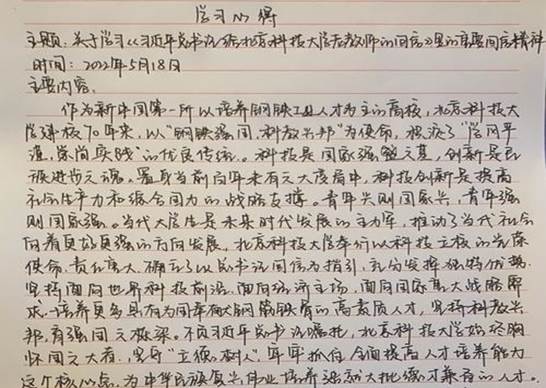 学习心得
主题:关于学习《习近平总书记给北京科技大学老教授的回信》里的重要回信精神
时间:2022年5月18日
主要内容:
作为新中国第一所以培养钢铁工业人才为主的高校,北京科技大
学建校70年来,以"钢铁强国、科教兴邦"为使命,"学风严
谨,崇尚实践"的优良传统。科技是国家强盛之基,创新是民
族进步之魂。置身当前百年未有之大变局中,科技创新是提高
社会生产力和综合国力的战略支撑。青年兴则国家兴,青年强
则国家强。当代大学生是未来时代发展的主力军,推动了当代社会
向着更好更强的方向发展,北京科技大学奉行以科技立校的光荣
使命,责任重大,确立了以总书记回信为指引,充分发挥独特优势,
坚持面向世界科技前沿、面向经济主场、面向国家重大战略需
求,培养更多具有为国奉献钢筋铁骨的高素质人才,坚持科教兴
邦,有强国之栋梁。不负习近平总书记嘱托,北京科技大学始终胸
怀国之大者,坚守"立德树人",牢牢抓住全面提高人才培养能力
这个核心点,为中华民族复兴伟业培养德才兼备的人才。